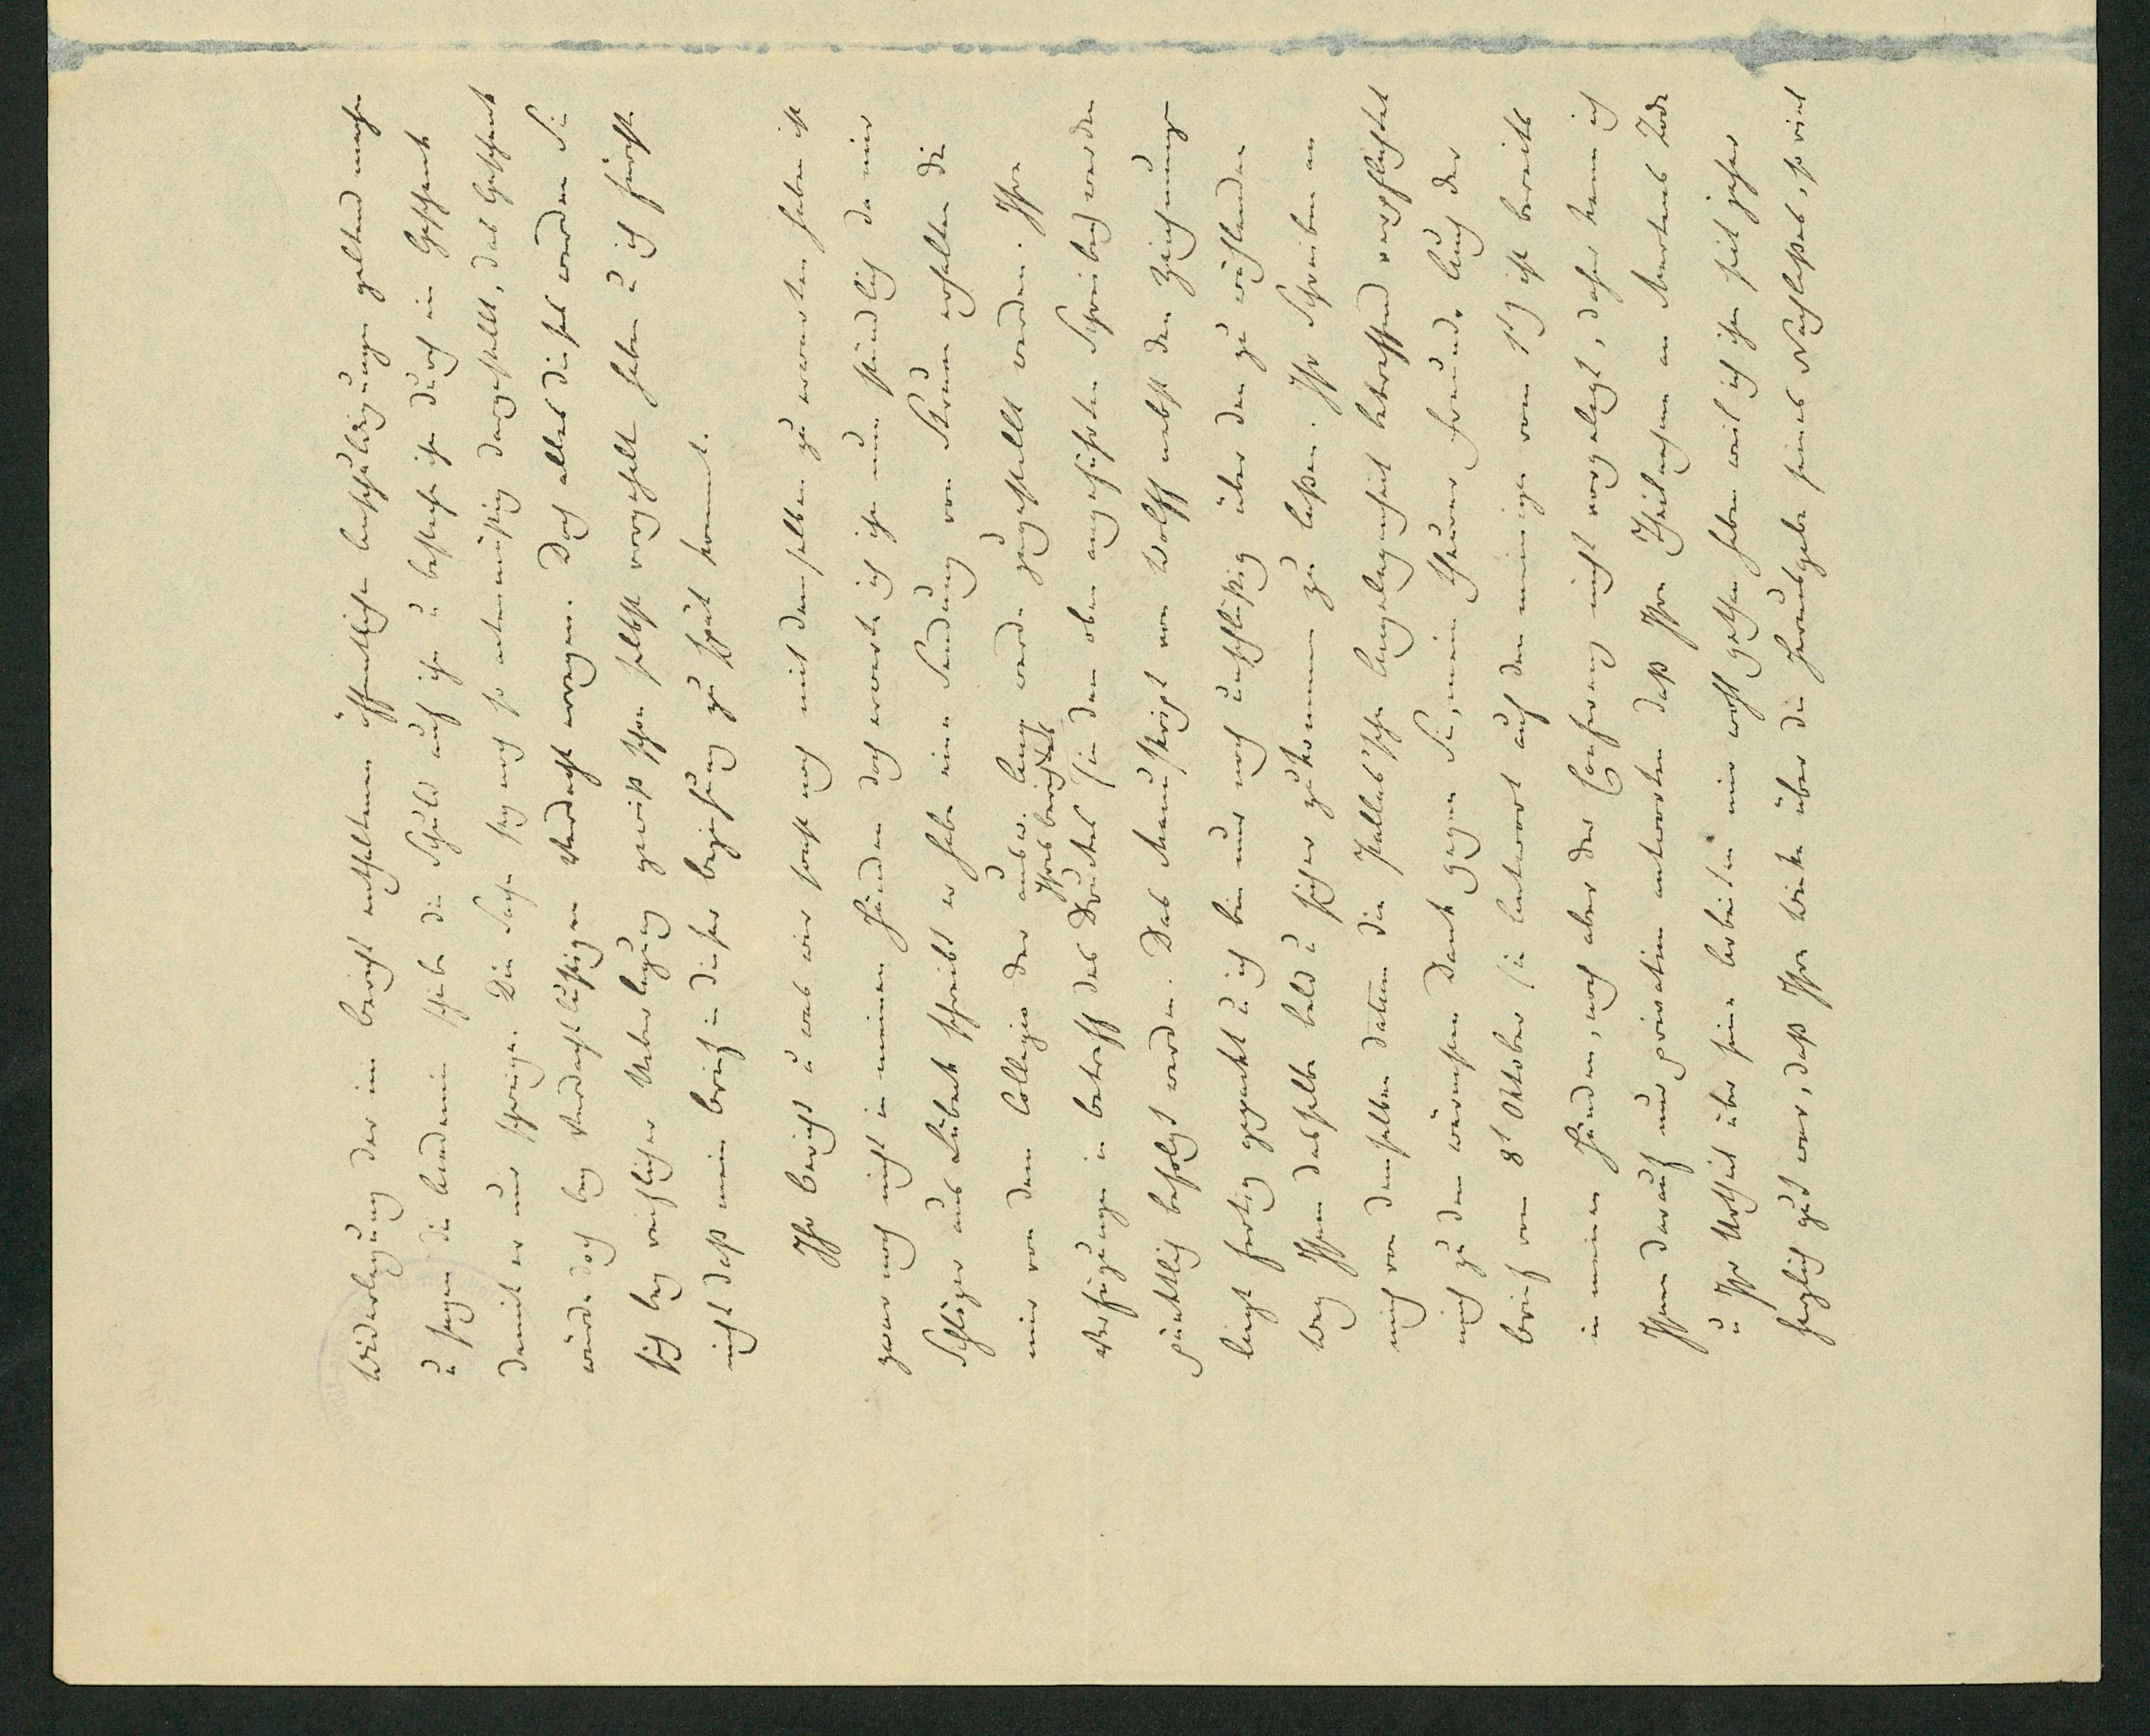 Widerlegung der im bericht enthaltenen öffentlichen Anschuldigungen geltend machen
u sagen die Academie schiebe die Schuld auf ihn u besteche ihn durch ein Geschenk
damit er nur schweige. Die Sache sey noch so actenmäßig dargestellt, das Geschenk
würde doch bey Verdachtlustigen Verdacht erregen. Doch alles dieses werden Sie
sich bey reiflicher Ueberlegung gewiß schon selbst vorgestellt haben u ich fürchte
nicht daß mein brief in dieser beziehung zu spät kommt.
Ihr bericht u was wir sonst noch mit demselben zu erwarten haben ist
zwar noch nicht in meinen Händen doch erwarte ich ihn nun stündlich da mir
Schlözer aus Lübeck schreibt er habe eine Sendung von Ihnen erhalten die
mir von dem Collegio der ausw. Ang. werde zugestellt werden. Ihre
Verfügungen in betreff des Druckes Ihres berichtes (in dem oben angeführten Schreiben) werden
pünktlich befolgt werden. Das Manuskript von Wolff nebst den Zeichnungen
liegt fertig gepackt u ich bin nur noch unschlüssig über den zu wählenden
Weg Ihnen dasselbe bald u sicher zukommen zu laßen. Ihr Schreiben an
mich von demselben datum die Pallas'sche Angelegenheit betreffend verpflichtet
mich zu dem wärmsten Dank gegen Sie, mein theurer Freund. Auch der
brief vom 8t Oktober (in Antwort auf den meinigen vom 15) ist bereits
in meinen Händen, noch aber der Conferenz nicht vorgelegt, daher kann ich
Ihnen darauf nur privatim antworten daß Ihre Theilnahme an Mertens Tode
u Ihr Urtheil über seine Arbeiten mir wohl gethan haben weil ich ihm seit jeher
herzlich gut war, daß Ihre Winke über die Herausgabe seines Nachlaßes, so viel